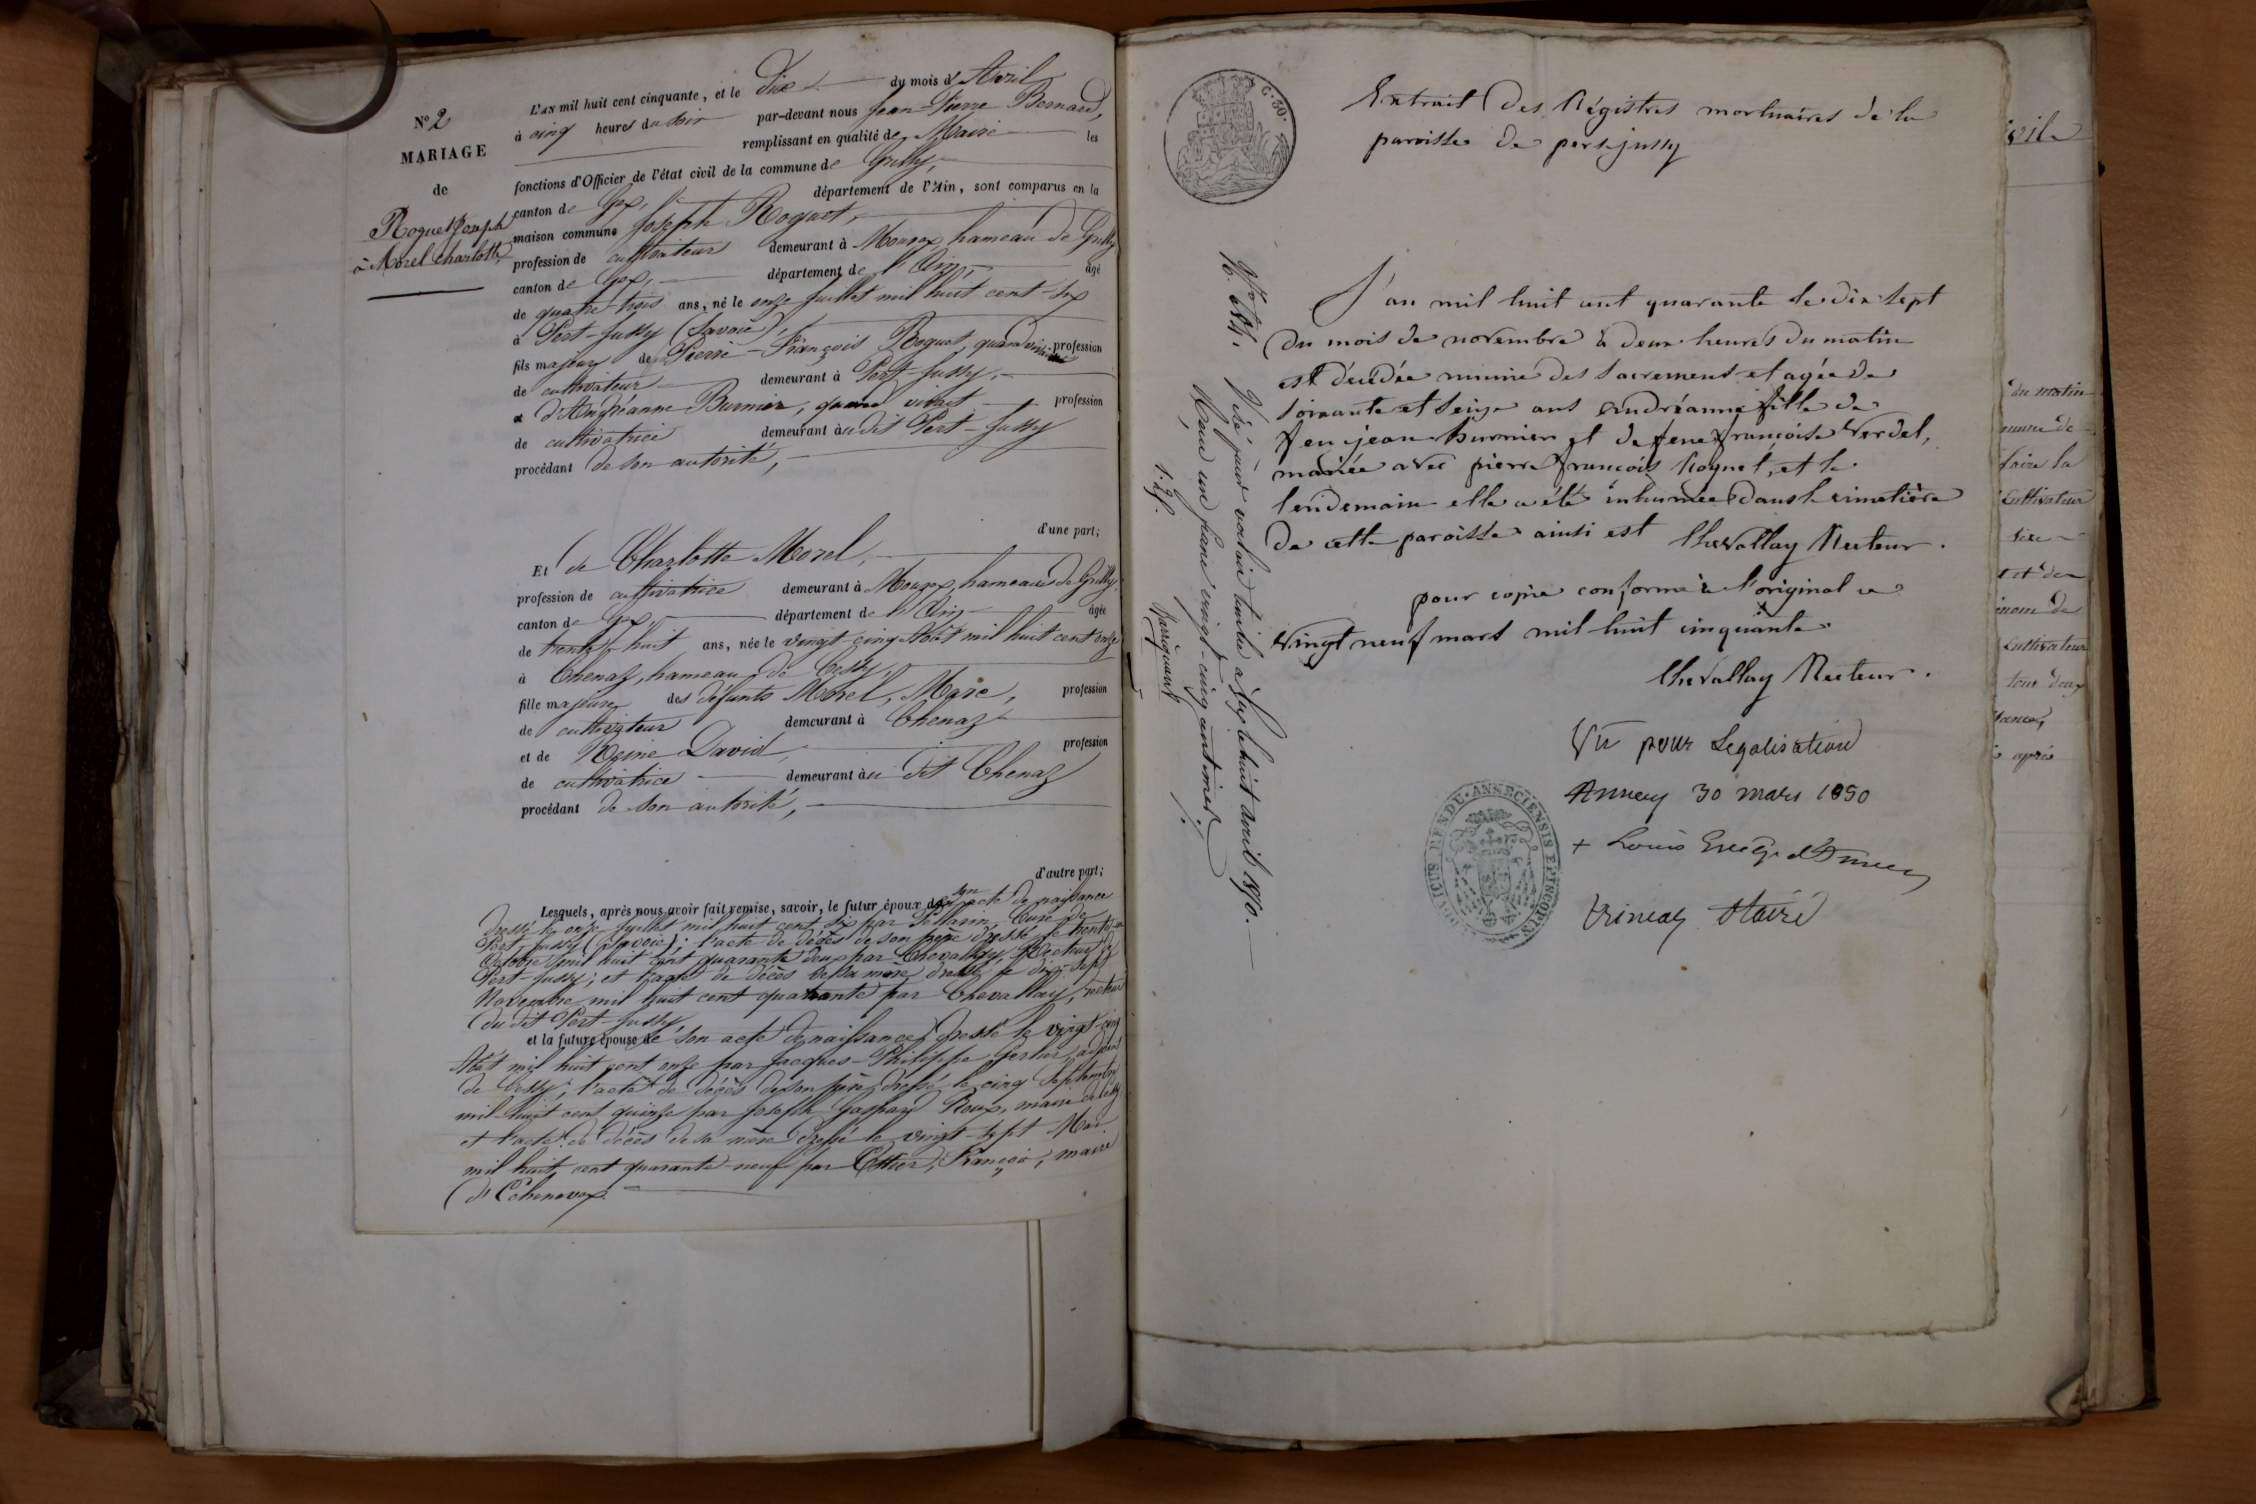 N° 2
MARIAGE
de
Roquet Joseph
à Morel Charlotte
L'an mil huit cent cinquante, et le dix du mois d'Avril
à cinq heures du soir par-devant nous Jean-Pierre Bernard,
remplissant en qualité de Maire les
fonctions d'Officier de l'état civil de la commune de Grilly,
canton de Gex, département de l'Ain, sont comparus en la
maison commune Joseph Roquet,
profession de cultivateur demeurant à Mourex, hameau de Grilly
canton de Gex, département de l'Ain, âgé
de quatre-trois ans, né le onze juillet mil huit cent six
à Pert-Jussy (Savoie),
fils majeur de Pierre-François Roquet, quand vivait profession
de cultivateur demeurant à Pert-Jussy,
& d'Andréanne Burnier, quand vivait profession
de cultivatrice demeurant au dit Pert-Jussy
procédant de son autorité,
d'une part;
Et de Charlotte Morel,
profession de cultivatrice demeurant à Mourex, hameau de Grilly,
canton de Gex, département de l'Ain âgée
de trente-huit ans, née le vingt-cinq Août mil huit cent onze
à Chenaz, hameau de Cessy,
fille majeure des défunts Morel, Marc, profession
de cultivateur demeurant à Chenaz
et de Reine David, profession
de cultivatrice demeurant au dit Chenaz
procédant de son autorité,
d'autre part;
Lesquels, après nous avoir fait remise, savoir, le futur époux de son acte de naissance
dressé le onze juillet mil huit cent six par Curé de
Pert-Jussy (Savoie); l'acte de décès de son père dressé le trente
Octobre mil huit cent quarante deux par Chevallay, Recteur de
Pert-Jussy; et l'acte de décès de sa mère dressé le dix-sept
Novembre mil huit cent quarante par Chevallay, recteur
du dit Pert-Jussy,
et la future épouse de son acte de naissance dressé le vingt-cinq
Août mil huit cent onze par Jacques-Philippe adjoint
de Cessy; l'acte de décès de son père dressé le cinq Septembre
mil huit cent quinze par Joseph Gaspard Roux, maire de Cessy
et l'acte de décès de sa mère dressé le vingt-sept Mai
mil huit cent quarante-neuf par François, maire
d'Echenevex.
C. 30.
Extrait des Régistres mortuaires de la
paroisse de persjussy
L'an mil huit cent quarante le dix sept
du mois de novembre à deux heures du matin
est décédée munie des sacrements et agée de
soixante et seize ans andréanne fille de
feu jean burnier et de feue françoise Verdel,
mariée avec pierre françois Roquet, et le
lendemain elle a été inhumée dans le cimetière
de cette paroisse ainsi est Chevallay Recteur.
pour copie conforme à l'original ce
vingt neuf mars mil huit cinquante
Chevallay Recteur.
Vu pour Legalisation
Annecy 30 mars 1850
+ Louis Evêque d'Annecy
Visé pour valoir timbre à Gex le huit avril 1850.
Reçu un franc vingt-cinq centimes.
1.25.
vile
du matin
cultivateur
cultivateur
après